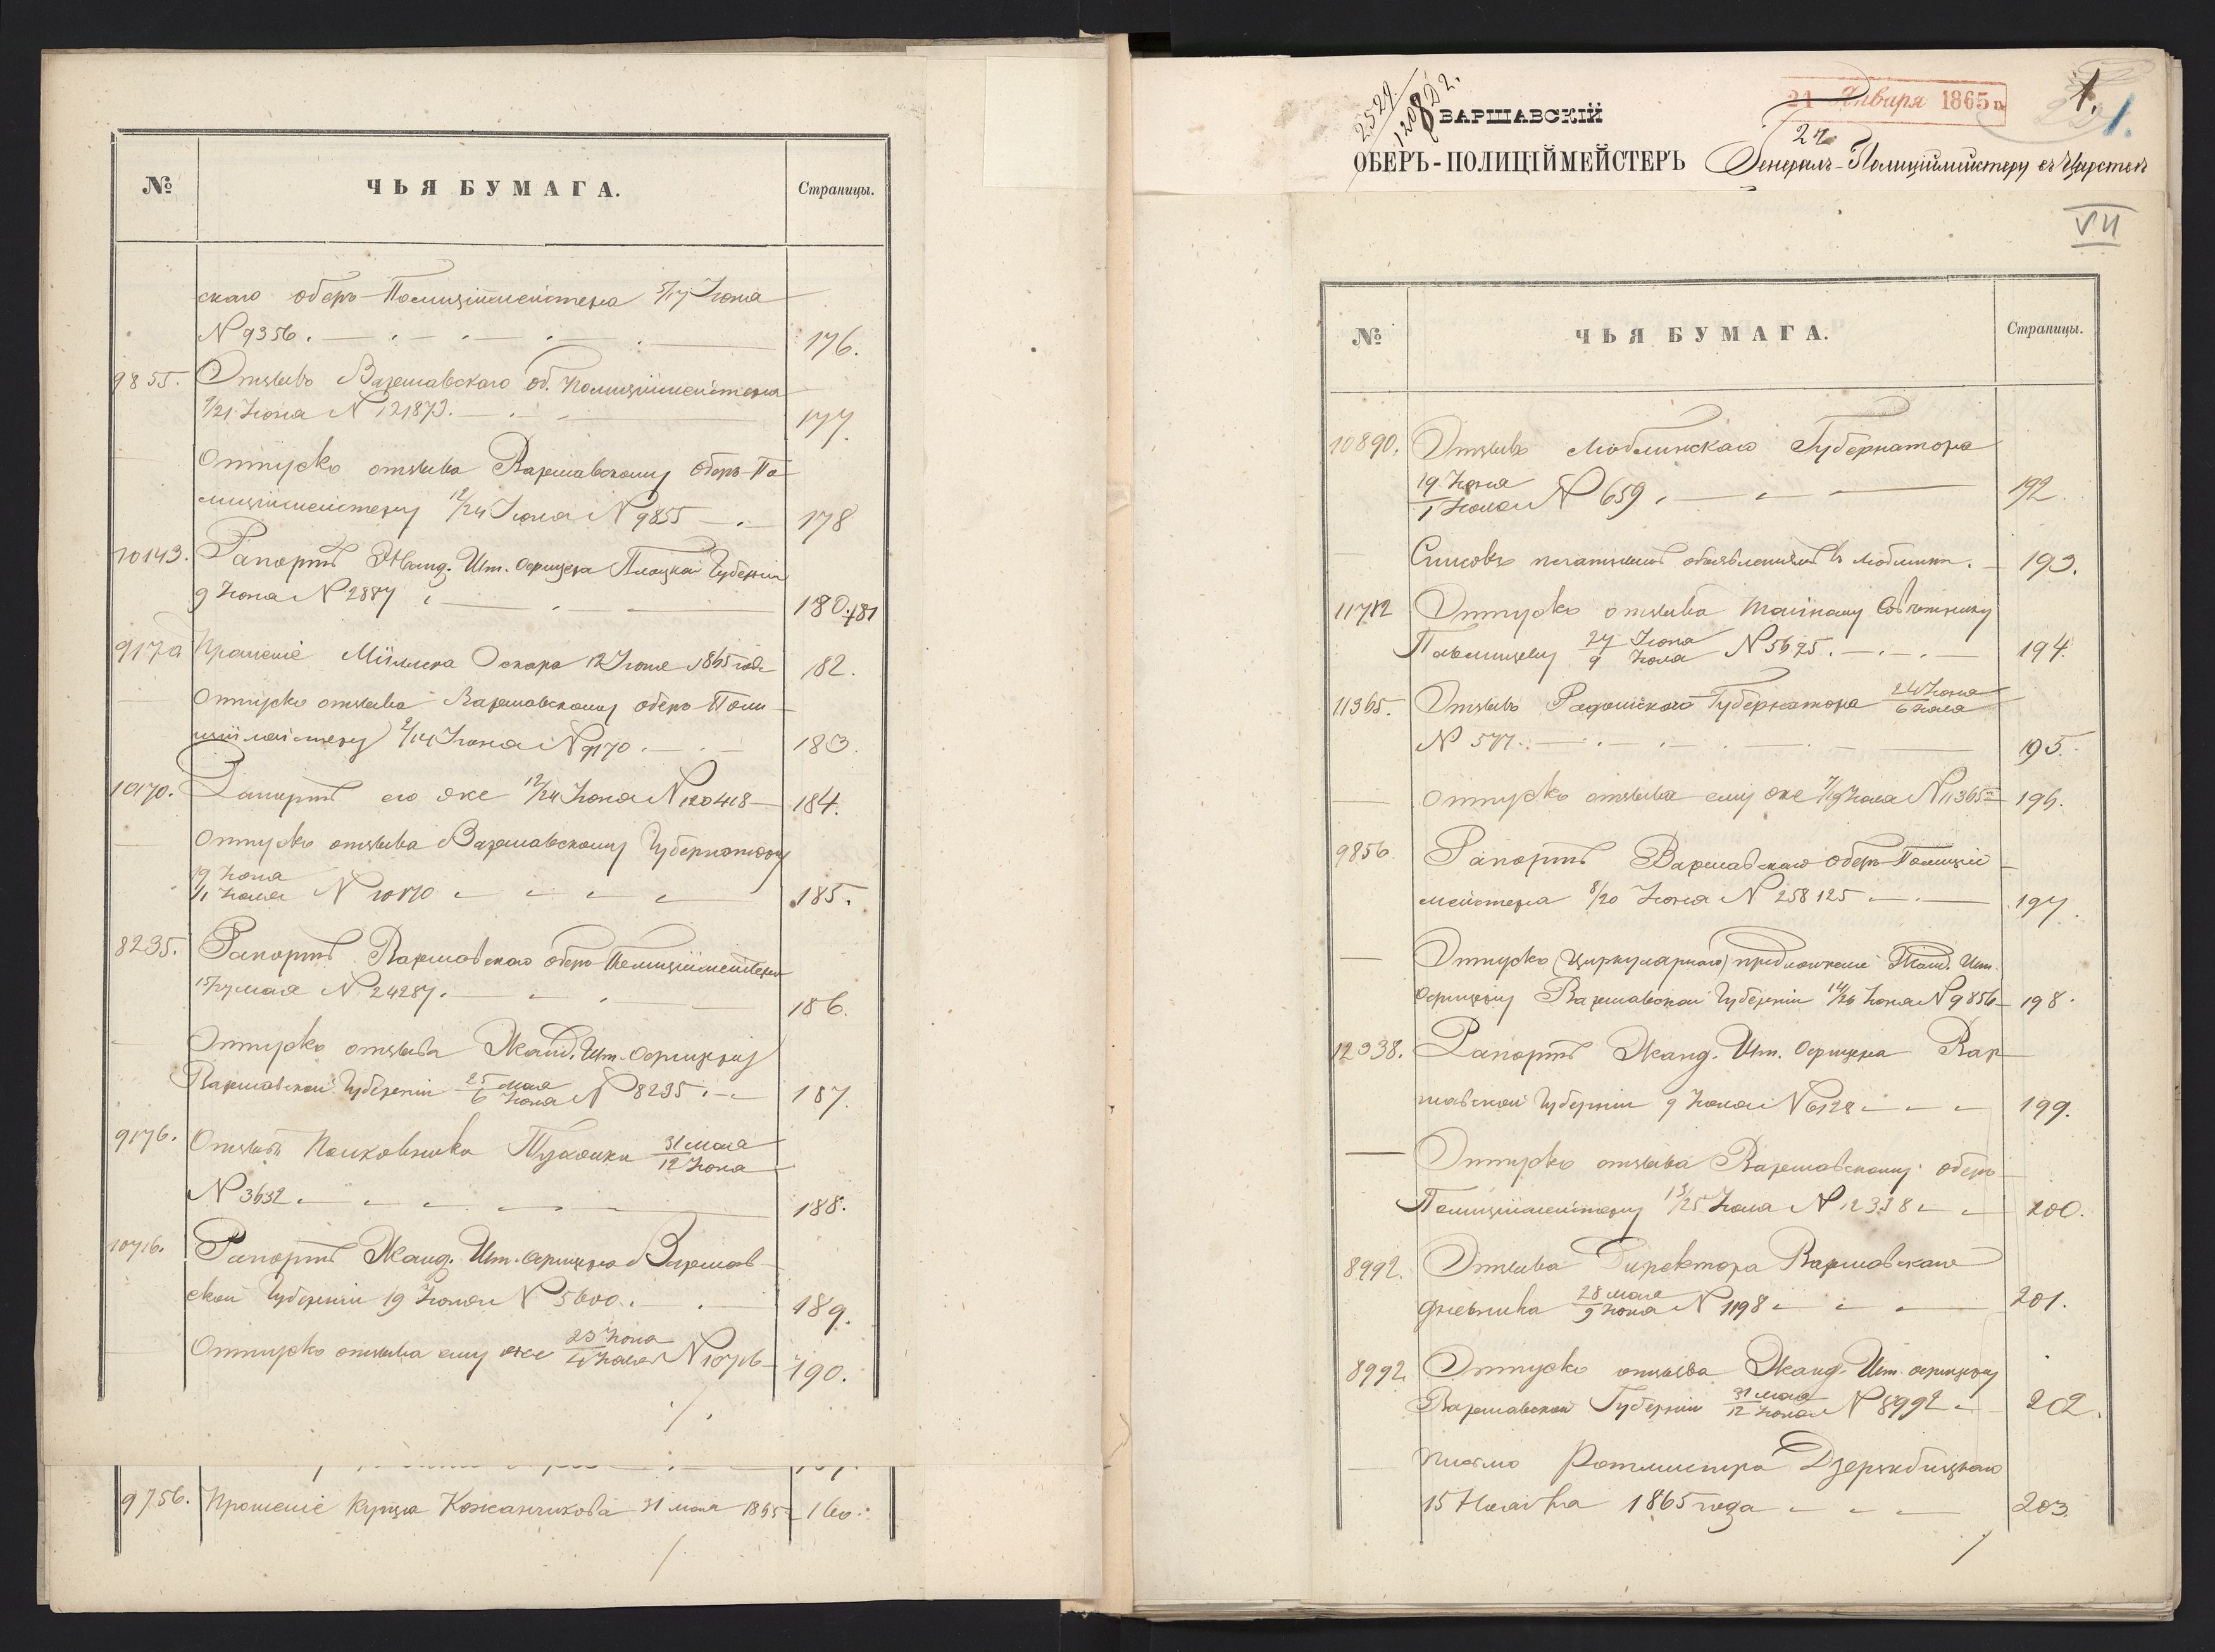 № ЧЬЯ БУМАГА. Страницы.
скаго оберъ-Полиціймейстера 5/17 Іюня
№ 9356. 176.
9855. Отзывъ Варшавскаго об. Полиціймейстера
9/21 Іюня № 121873. 177.
Отпускъ отзыва Варшавскому Оберъ-По
лиціймейстеру 12/24 Іюня № 9855 178
10143. Рапортъ Жанд. Шт. Офицера Плоцкой Губерніи
9 Іюня № 2887 180. 181
9170 Прошеніе Миллера Оскара 12 Іюня 1865 года 182.
Отпускъ отзыва Варшавскому оберъ-Поли
ціймейстеру 2/14 Іюня № 9170. 183.
10170. Рапортъ его же 12/24 Іюня № 120418 184.
Отпускъ отзыва Варшавскому Губернатору
19 Іюня
1 Іюля № 10170 185.
8235. Рапортъ Варшавскаго оберъ-Полиціймейстера
15/27 мая № 24287. 186.
Отпускъ отзыва Жанд. Шт. Офицеру
Варшавской Губерніи 25 мая/6 Іюня № 8235. 187.
9176. Отзывъ Полковника Тухолки 31 мая/12 Іюня
№ 3632. 188.
10716. Рапортъ Жанд. Шт. Офицера Варшав
ской Губерніи 19 Іюня № 5600. 189.
Отпускъ отзыва ему же 23 Іюня/4 Іюля № 10716 190.
9756. Прошеніе Купца Кожанчикова 31 мая 1865 160.
2524.
ВАРШАВСКІЙ
ОБЕРЪ-ПОЛИЦІЙМЕЙСТЕРЪ
21 Января 1865 г.
24
1.
1.
Генералъ-Полиціймейстеру въ Царствѣ
VII
№ ЧЬЯ БУМАГА. Страницы.
10890. Отзывъ Люблинскаго Губернатора
19 Іюня/1 Іюля № 659. 192.
Списокъ печатнымъ объявленіямъ въ Люблинѣ. 193.
11712 Отпускъ отзыва Тайному Совѣтнику
Павлищеву 27 Іюня/9 Іюля № 5695. 194.
11365. Отзывъ Радомскаго Губернатора 24 Іюня/6 Іюля
№ 577. 195.
Отпускъ отзыва ему же 7/19 Іюля № 11365 196.
9856. Рапортъ Варшавскаго оберъ-Полицій
мейстера 8/20 Іюня № 258125 197.
Отпускъ (Циркулярнаго) предложенія Жанд. Шт.
Офицеру Варшавской Губерніи 14/26 Іюня № 9856 198.
12338. Рапортъ Жанд. Шт. Офицера Вар
шавской Губерніи 9 Іюля № 6128 199.
Отпускъ отзыва Варшавскому оберъ
Полиціймейстеру 13/25 Іюля № 12338 200.
8992. Отзыва Директора Варшавскаго
дневника 28 мая/9 Іюня № 1198 201.
8992. Отпускъ отзыва Жанд. Шт. офицеру
Варшавской Губерніи 31 мая/12 Іюня № 8992 202.
Письмо Ротмистра
15 1865 года 203.